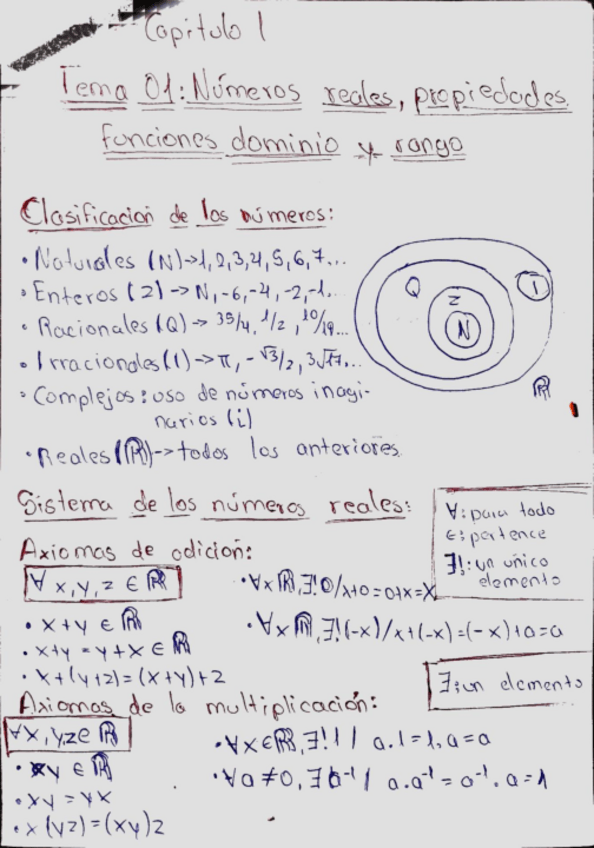 Capitulo 1
Tema 01: Números reales, propiedades,
funciones dominio y rango
Clasificación de los números:
• Naturales (N)->1,2,3,4,5,6,7...
• Enteros (Z) -> N,-6,-4,-2,-1..
• Racionales (Q) -> 35/4, 1/2, 10/19...
• Irracionales (I) -> π, -√3/2, 3√17,...
• Complejos: uso de números inagi-
narios (i)
• Reales (ℝ)-> todos los anteriores.
Q
Z
N
I
ℝ
Sistema de los números reales:
∀: para todo
∈: pertence
∃!: un único
elemento
Axiomas de adición:
∀ x, y, z ∈ ℝ
• x+y ∈ ℝ
• x+y = y+x ∈ ℝ
• x+(y+z)=(x+y)+z
• ∀x ℝ, ∃!0/x+0=0+x=x
• ∀x ℝ, ∃!(-x)/x+(-x)=(-x)+a=a
∃: un elemento
Axiomas de la multiplicación:
∀x, y,z∈ ℝ
• xy ∈ ℝ
• xy = yx
• x(yz)=(xy)z
• ∀x∈ℝ, ∃!1 / a.1=1.a=a
• ∀a≠0, ∃!a⁻¹ / a.a⁻¹=a⁻¹.a=1